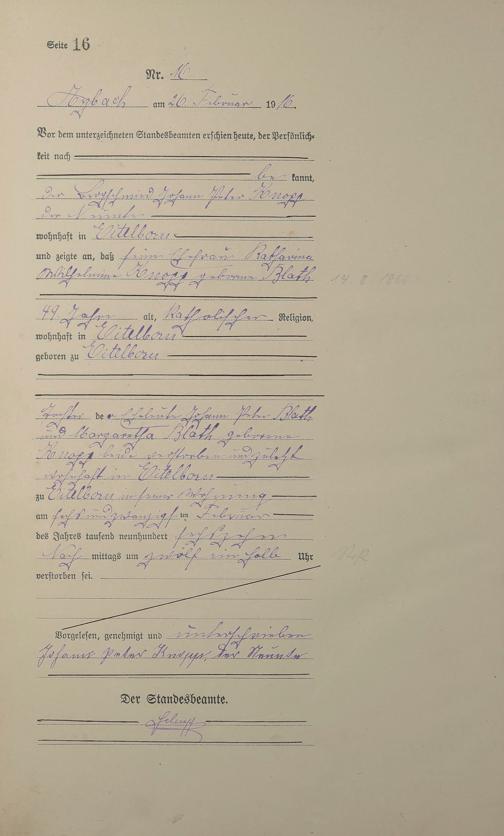 Seite 16
Nr. 16
Arzbach am 26. Februar 1916.
Vor dem unterzeichneten Standesbeamten erschien heute, der Persönlich-
keit nach
be kannt,
der Bergschmied Johann Peter Knopp
der Neunte
wohnhaft in Eitelborn
und zeigte an, daß seine Ehefrau Katharina
Wilhelmine Knopp geborene Blath
49 Jahre alt, Katholischer Religion,
wohnhaft in Eitelborn
geboren zu Eitelborn
Tochter der Eheleute Johann Peter Blath
und Margaretha Blath geborene
Knopp beide verstorben und zuletzt
wohnhaft in Eitelborn
zu Eitelborn in seiner Wohnung
am sechsundzwanzigsten Februar
des Jahres tausend neunhundert sechszehn
Nach mittags um zwölf ein halb Uhr
verstorben sei.
Vorgelesen, genehmigt und unterschrieben
Johann Peter Knopp, der Neunte
Der Standesbeamte.